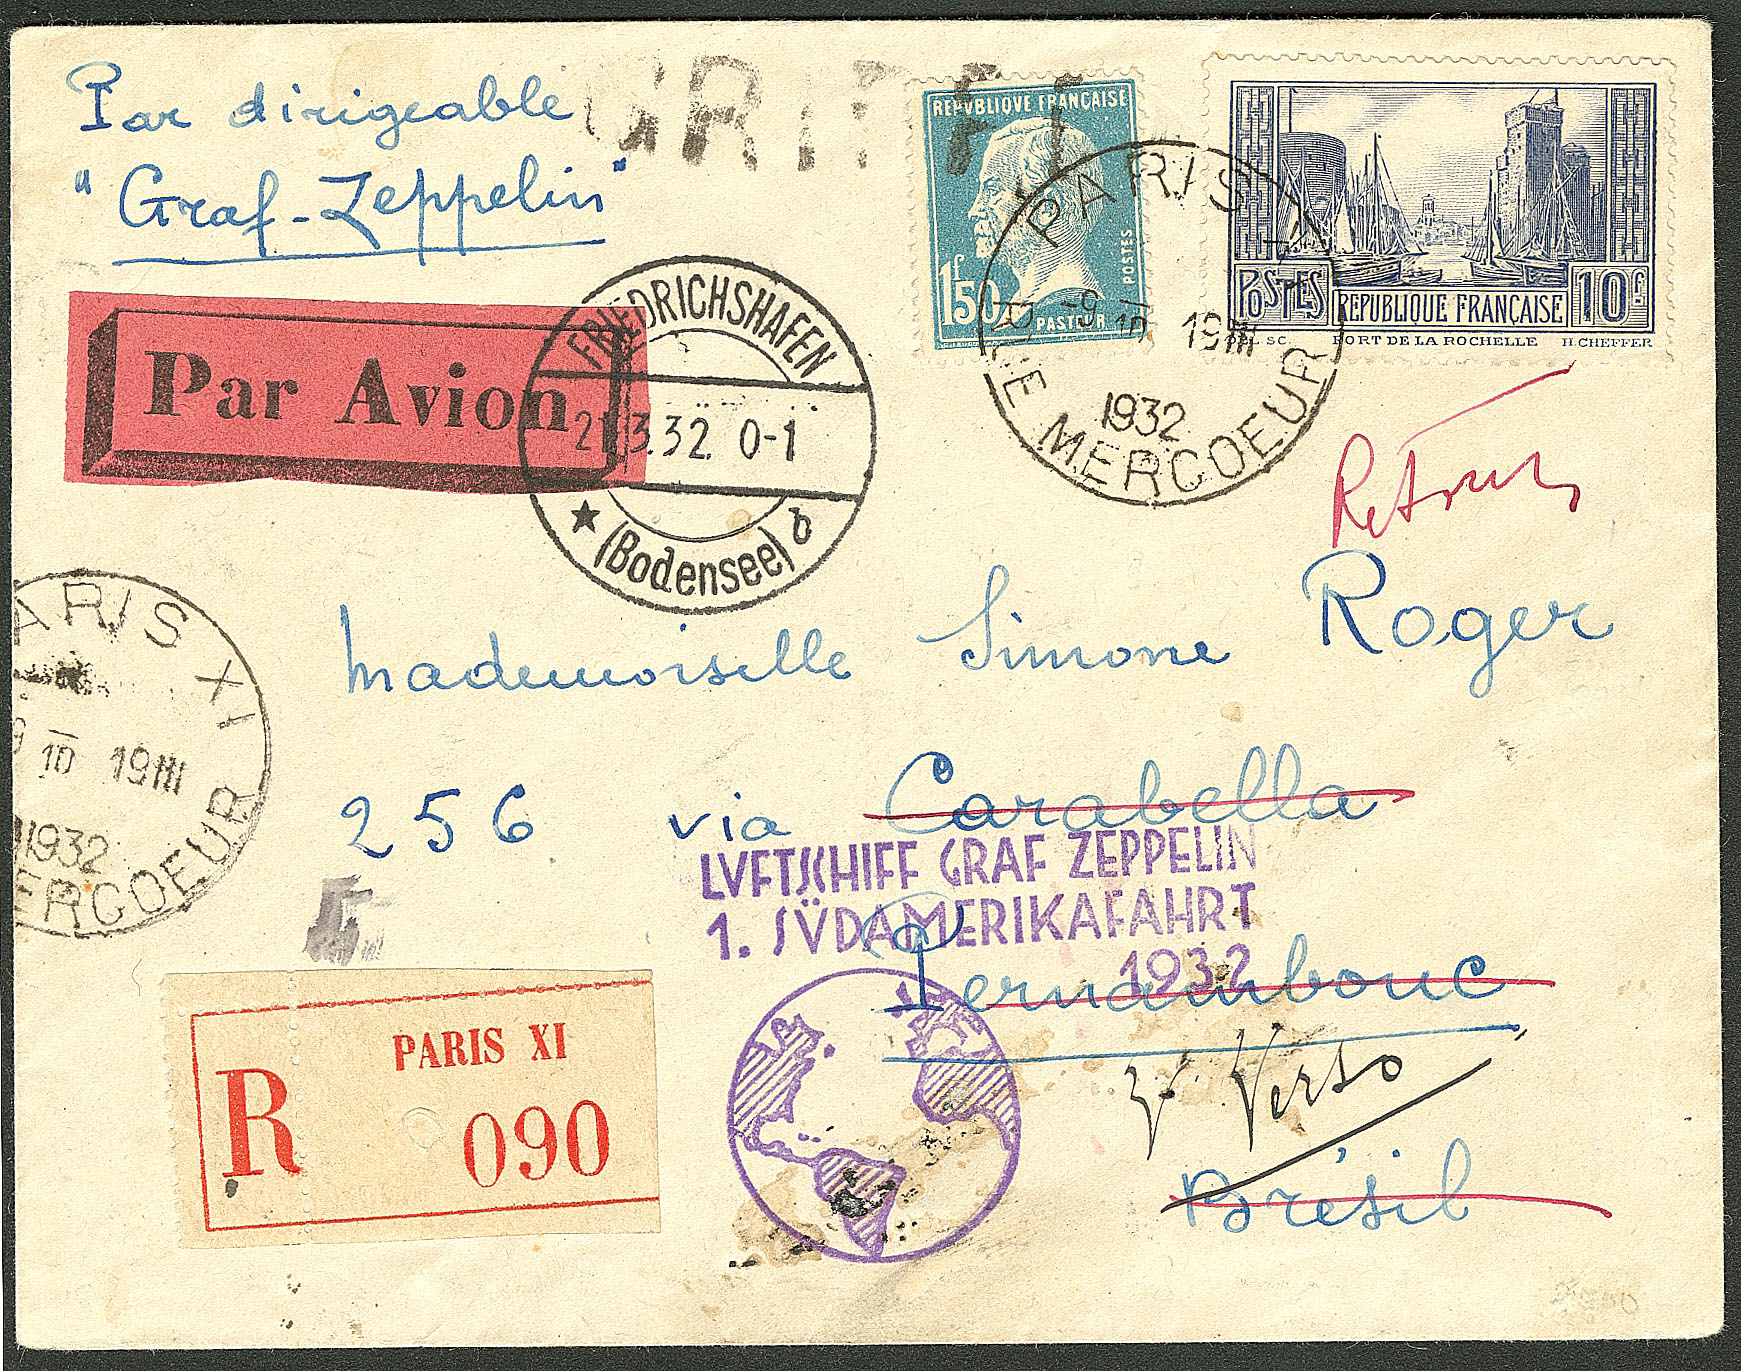 Par dirigeable
"Graf-Zeppelin"
GRIFFE
REPVBLIQVE FRANÇAISE
1f50
POSTES
PASTEUR
POSTES
REPUBLIQUE FRANÇAISE
10f
SC.
PORT DE LA ROCHELLE
H.CHEFFER
PARIS XI
-9 10 19III
1932
RUE MERCOEUR
Par Avion
FRIEDRICHSHAFEN
21.3.32. 0-1
★ (Bodensee) b
Retour
ARIS XI
9 10 19III
1932
ERCOEUR
Mademoiselle Simone Roger
256 via Carabella
LVFTSCHIFF GRAF ZEPPELIN
1. SÜDAMERIKAFAHRT
1932
Pernambouc
Verso
Brésil
PARIS XI
R 090